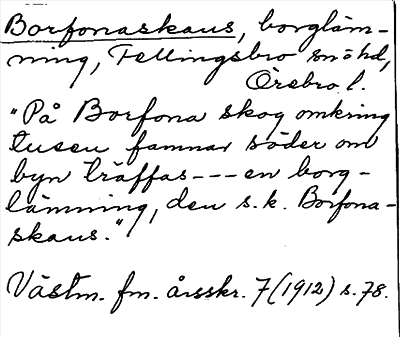 Borfonaskans, borgläm-
ning, Fellingsbro sn o hd,
Örebro l.
"På Borfona skog omkring
tusen famnar söder om
byn träffas --- en borg-
lämning, den s.k. Borfona-
skans."
Västm. fm. årsskr. 7 (1912) s. 78.